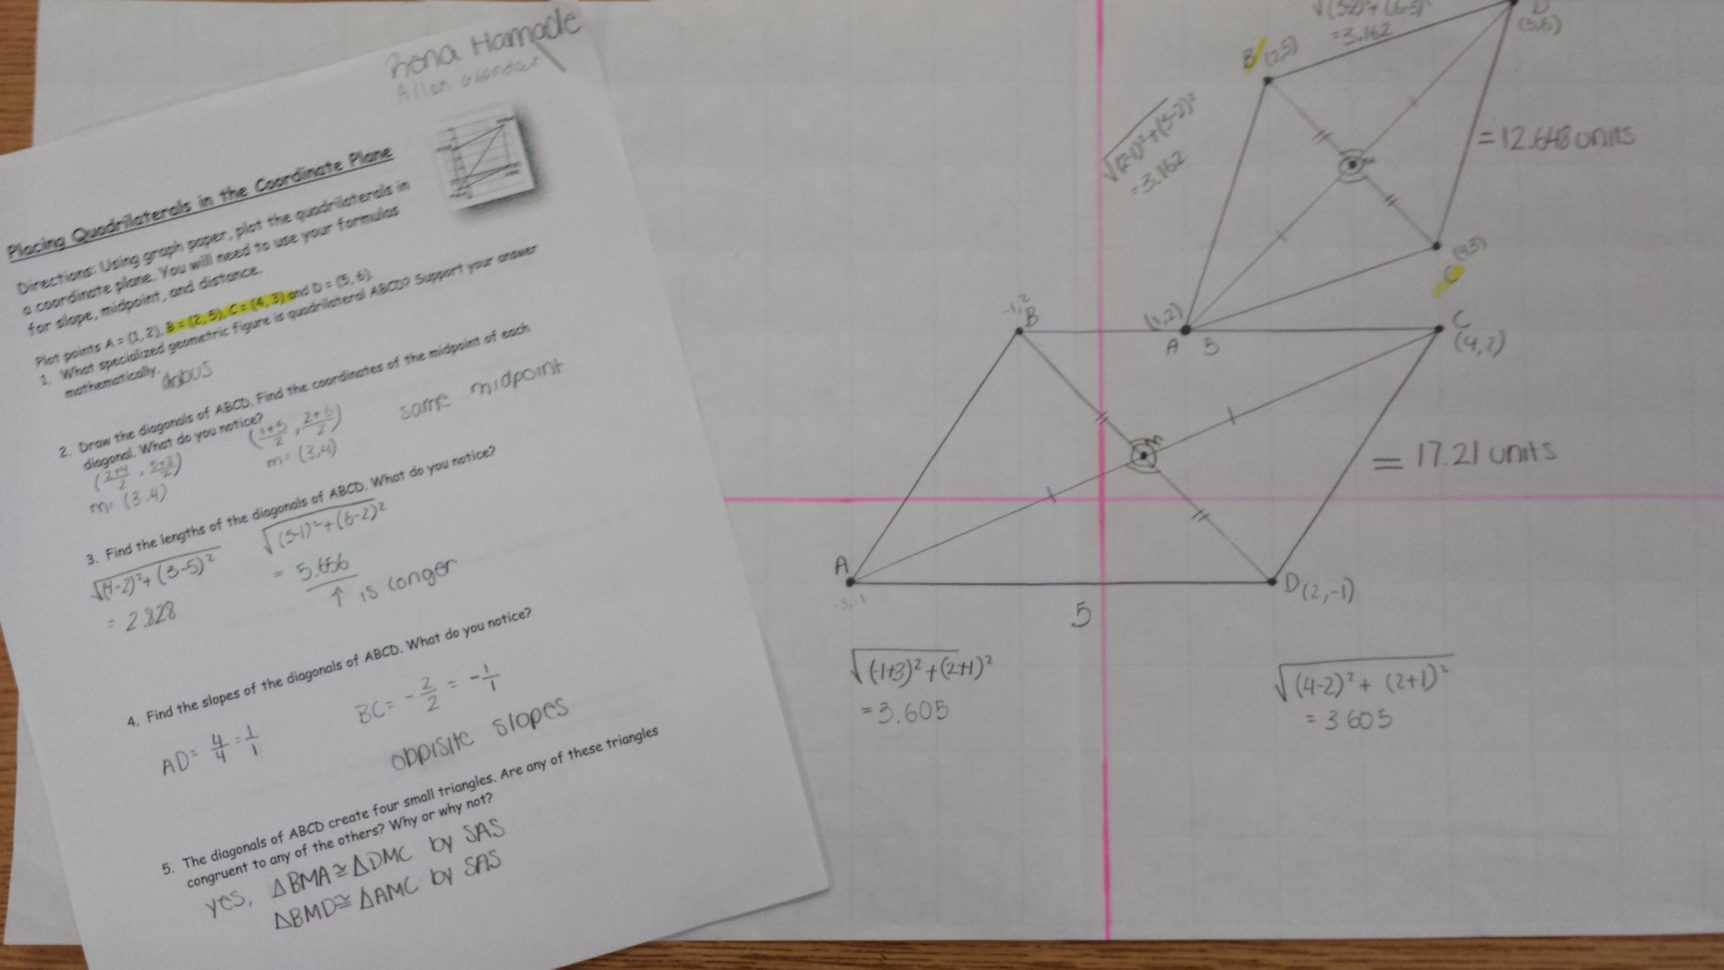 Rena Hamade
Allen
Placing Quadrilaterals in the Coordinate Plane
Directions: Using graph paper, plot the quadrilaterals in
a coordinate plane. You will need to use your formulas
for slope, midpoint, and distance.
Plot points A = (1, 2), B = (2, 5), C = (4, 3) and D = (5, 6).
1. What specialized geometric figure is quadrilateral ABCD? Support your answer
mathematically.
2. Draw the diagonals of ABCD. Find the coordinates of the midpoint of each
diagonal. What do you notice?
(2+4/2, 5+3/2)
m= (3,4)
(1+5/2, 2+6/2)
m= (3,4)
same midpoint
3. Find the lengths of the diagonals of ABCD. What do you notice?
√(4-2)²+(3-5)²
= 2.828
√(5-1)²+(6-2)²
= 5.656
↑ is longer
4. Find the slopes of the diagonals of ABCD. What do you notice?
AD= 4/4 = 1/1
BC= -2/2 = -1/1
oppisite slopes
5. The diagonals of ABCD create four small triangles. Are any of these triangles
congruent to any of the others? Why or why not?
yes, ΔBMA≅ΔDMC by SAS
ΔBMD≅ΔAMC by SAS
= 3.162
D
(5,6)
B (2,5)
√(2-1)²+(5-2)²
= 3.162
= 12.648 units
M
C
(1,2)
A
-1,2
B
5
C
(4,2)
M
= 17.21 units
A
-3,-1
D (2,-1)
5
√(-1+3)²+(2+1)²
= 3.605
√(4-2)²+ (2+1)²
= 3605